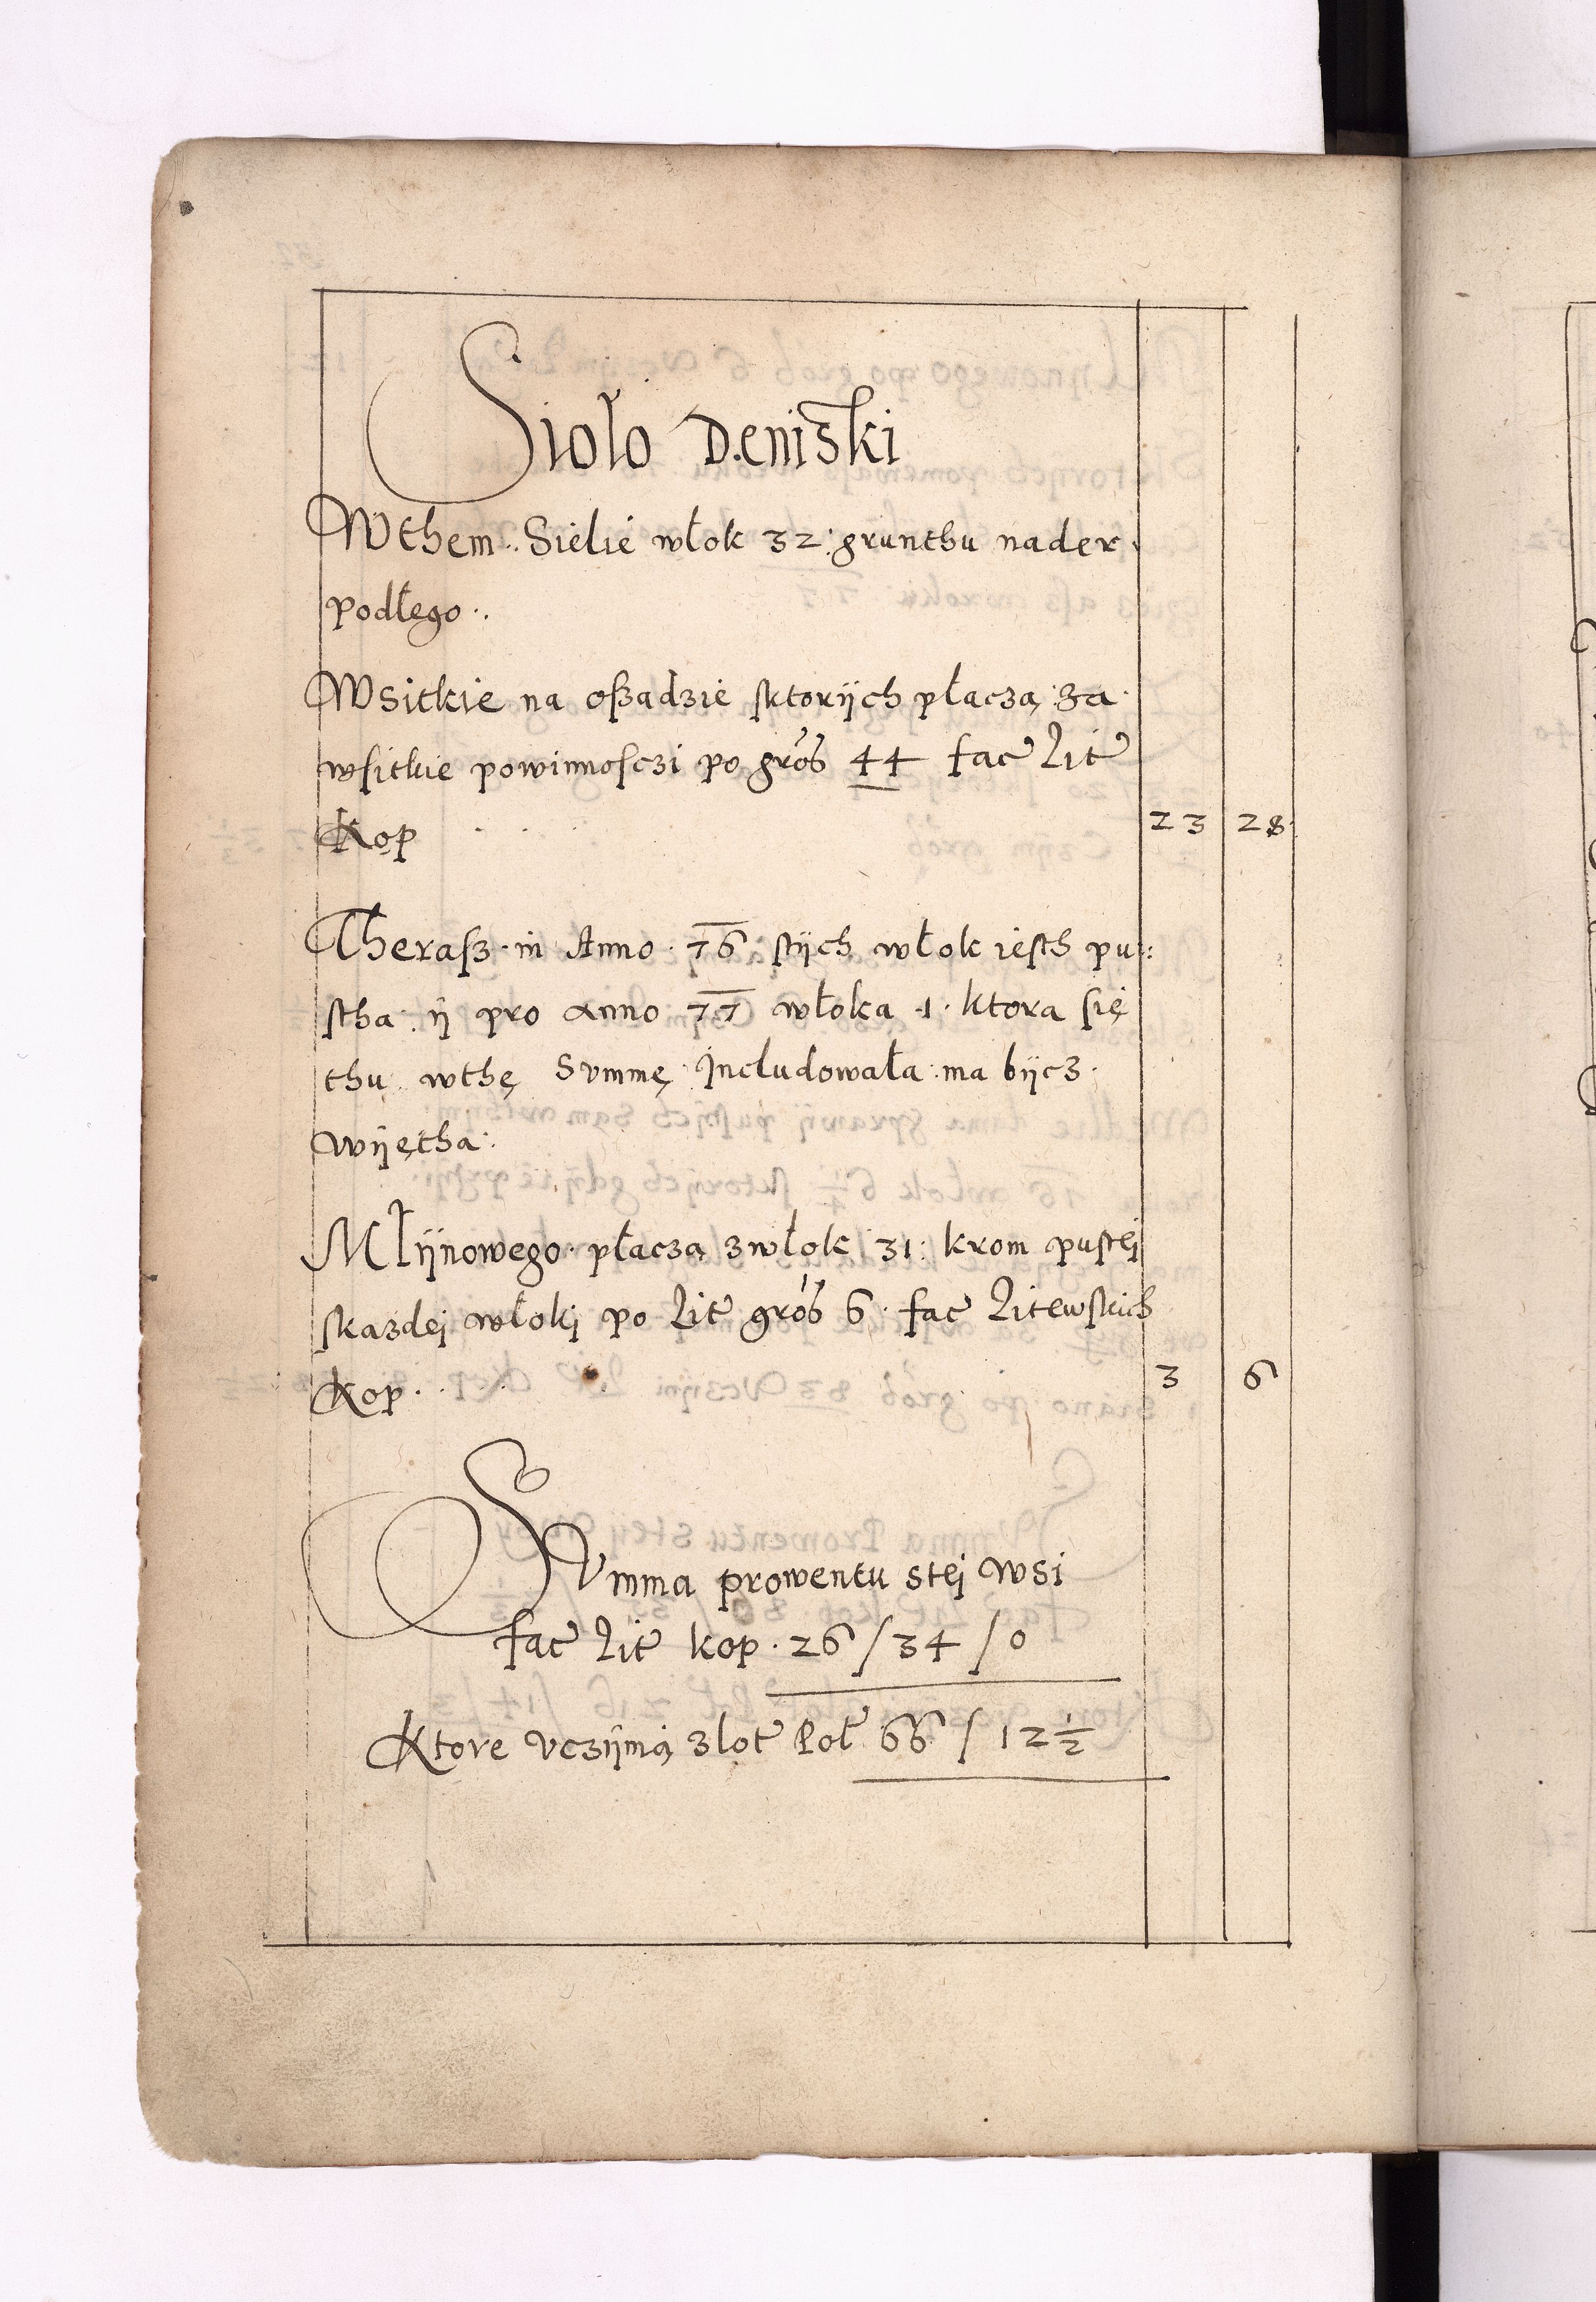 Sioło Deniski
Wthem Sielie włok 32 grunthu nader
podłego
Wsitkie na oßadzie sktorijch płacżą za
wsitkie powinnosczi po gros 44 fac Lit
Kop 23 28
Therasz in Anno 76 stijch włok iesth pu
stha ij pro anno 77 włoka 1 ktora się
thu wthę Summę Includowała ma bijcz
wijętha
Młijnowego płaczą z włok 31 krom pustej
skazdej włokj po Lit gros 6 fac Litewskich
Kop 3 6
Summa prowentu stej wsi
fac Lit kop 26 / 34 / 0
Ktore uczijnią złot Pol 66 / 12 1/2